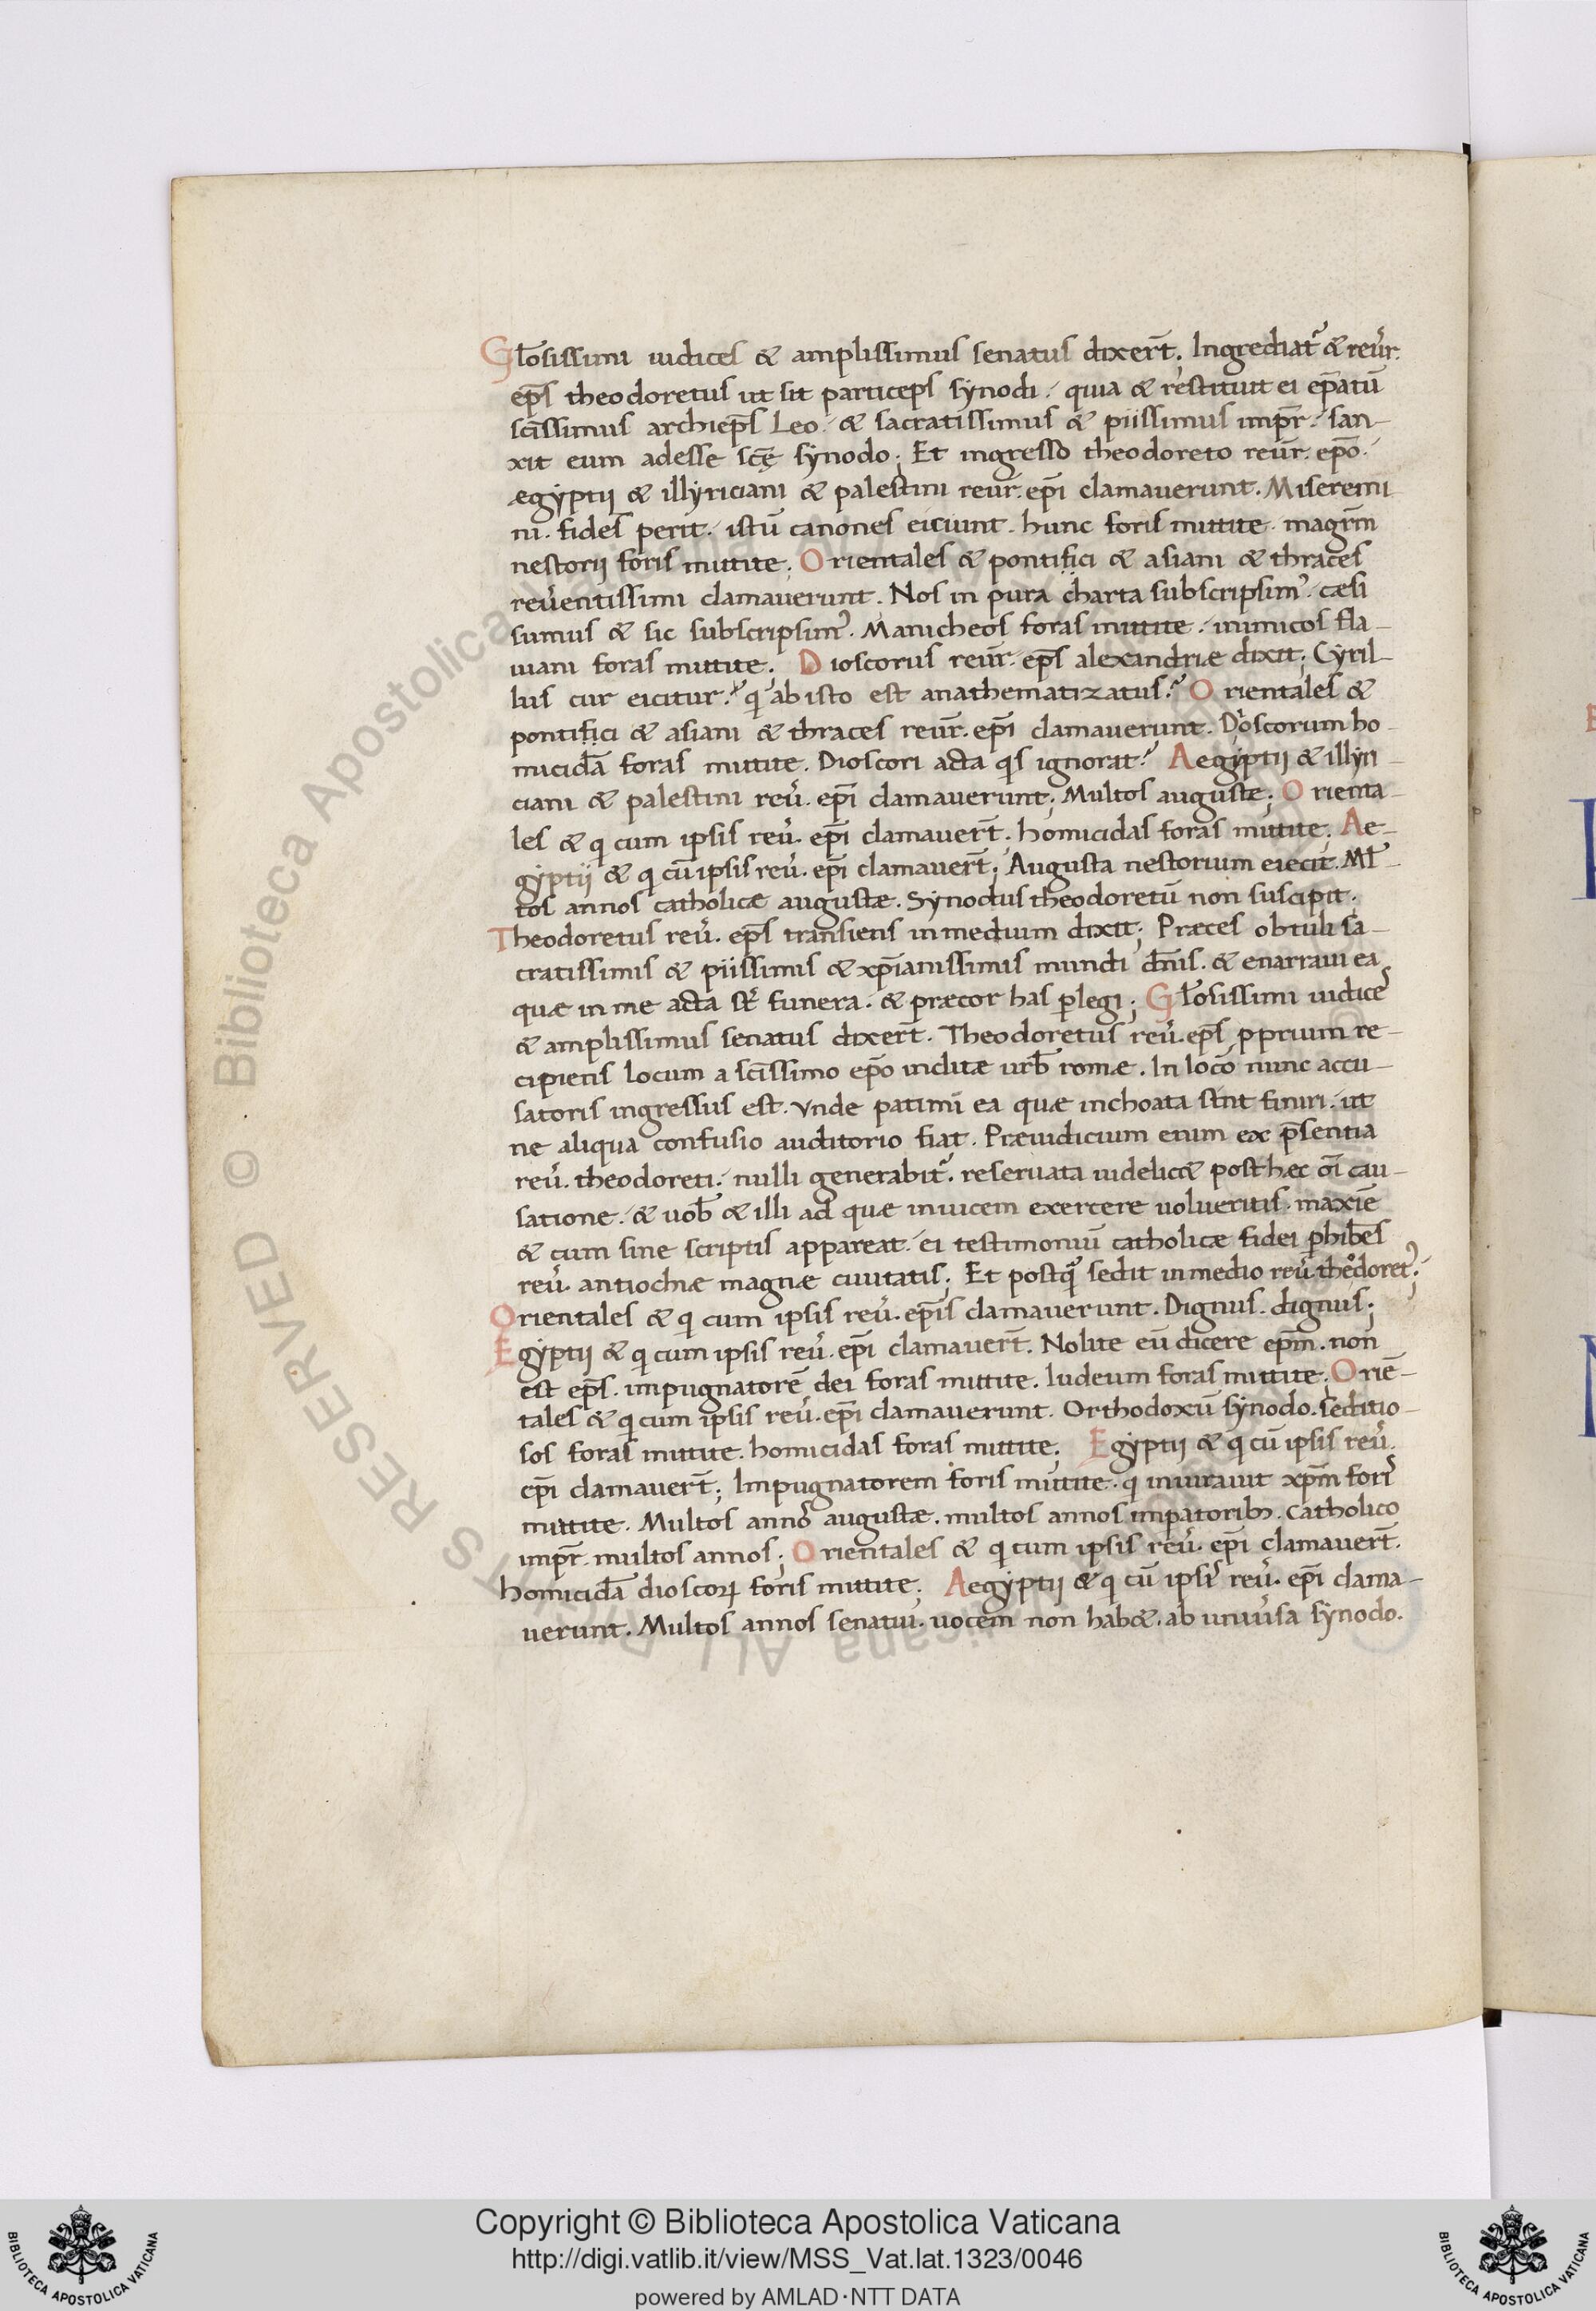 Gl̄osissimi iudices & amplissimus senatus dixer̄t. Ingrediat᷑ & reu᷑r.
ep̄s theodoretus ut sit particeps synodi. quia & restituit ei ep̄atū
sc̄issimus archiep̄s Leo. & sacratissimus & piissimus imp̄r. san-
xit eum adesse sc̄ę synodo; Et ingresso theodoreto reūr. ep̄o.
ægyptij & illyriciani & palestini reūr. ep̄i clamauerunt. Miseremi
ni. fides perit. istū canones eiciunt. hunc foris mittite. magr̄m
nestorij foris mittite; Orientales & pontifici & asiani & thraces
reu᷑entissimi clamauerunt. Nos in pura charta subscripsimꝰ. cæsi
sumus & sic subscripsimꝰ. Manicheos foras mittite. inimicos fla-
uiani foras mittite; Dioscorus reūr. ep̄s alexandriæ dixit; Cyril-
lus cur eicitur? qͥ ab isto est anathematizatus? Orientales &
pontifici & asiani & thraces reūr. ep̄i clamauerunt. Dͥoscorum ho-
micidā foras mittite. Dioscori acta qͥs ignorat? Aegyptij & illyri-
ciani & palestini reu᷑. ep̄i clamauerunt; Multos augustæ; Orienta-
les & qͥ cum ipsis reu᷑. ep̄i clamauer̄t. homicidas foras mittite. Ae-
gyptij & qͥ cū ipsis reu᷑. ep̄i clamauer̄t; Augusta nestorium eiecit. Ml̄-
tos annos catholicæ augustæ. Synodus theodoretū non suscipit.
Theodoretus reu᷑. ep̄s transiens in medium dixit; Præces obtuli sa-
cratissimis & piissimis & xp̄ianissimis mundi dn̄is. & enarraui ea
quæ in me acta st̄ funera. & præcor has ꝑlegi; Gl̄osissimi iudices
& amplissimus senatus dixer̄t. Theodoretus reu᷑. ep̄s ꝓprium re-
cipiens locum a sc̄issimo ep̄o inclitæ urb̄ romæ. In locō nunc accu-
satoris ingressus est. vnde patimī ea quæ inchoata sint finiri. ut
ne aliqua confusio auditorio fiat. Præiudicium enim ex p̄sentia
reu᷑. theodoreti. nulli generabit᷑. reseruata uidelic& post hæc oī cau-
satione. & uob̄ & illi ad quæ inuicem exercere uolueritis. maxiē
& cum sine scriptis appareat. ei testimoniū catholicæ fidei phib̄es
reu᷑. antiochiæ magnæ ciuitatis; Et postqͣ sedit in medio reu᷑ theͦdoretꝰ;
Orientales & qͥ cum ipsis reu᷑. ep̄is clamauerunt. Dignus. dignus;
Egyptij & qͥ cum ipsis reu᷑. ep̄i clamauer̄t. Nolite eū dicere ep̄m. non
est ep̄s. impugnatorē dei foras mittite. Iudeum foras mittite. Oriē-
tales & qͥ cum ipsis reu᷑. ep̄i clamauerunt. Orthodoxū synodo. seditio-
sos foras mittite. homicidas foras mittite; Egyptij & qͥ cū ipsis reu᷑.
ep̄i clamauer̄t; Impugnatorem foris mittite. qͥ iniurauit xp̄m foris
mittite. Multos annos augustæ. multos annos impatorib;. catholico
imp̄r. multos annos; Orientales & qͥ cum ipsis reu᷑. ep̄i clamauer̄t.
homicidā dioscoꝝ foris mittite; Aegyptij & qͥ cū ipsis reu᷑. ep̄i clama-
uerunt. Multos annos senatui. uocem non hab&. ab uniu᷑sa synodo.
© Biblioteca Apostolica Vaticana ALL RIGHTS RESERVED
Copyright © Biblioteca Apostolica Vaticana
http://digi.vatlib.it/view/MSS_Vat.lat.1323/0046
powered by AMLAD·NTT DATA
BIBLIOTECA APOSTOLICA VATICANA
BIBLIOTECA APOSTOLICA VATICANA